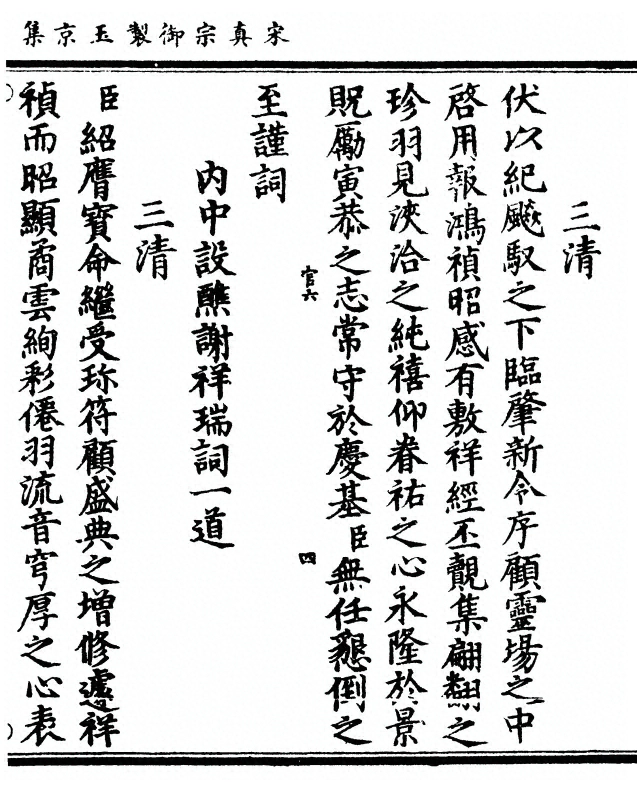 宋真宗御製玉京集
三清
伏以紀飈馭之下臨肇新令序顧靈場之中
啓用報鴻禎昭感有敷祥經丕覿集翩翻之
珍羽見浹洽之純禧仰眷祐之心永隆於景
貺勵寅恭之志常守於慶基臣無任懇倒之
官六
四
至謹詞
內中設醮謝祥瑞詞一道
三清
臣紹膺寶命繼受珎符顧盛典之增修遽祥
禎而昭顯矞雲絢彩僊羽流音穹厚之心表